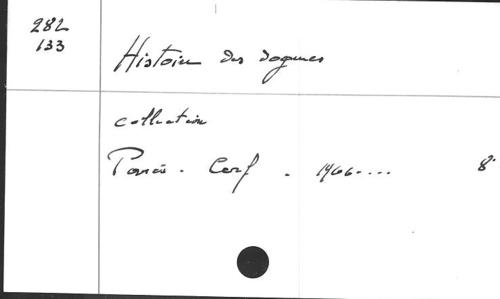 282
133
Histoire des dogmes
collection
Paris. Cerf. 1966.... 8°